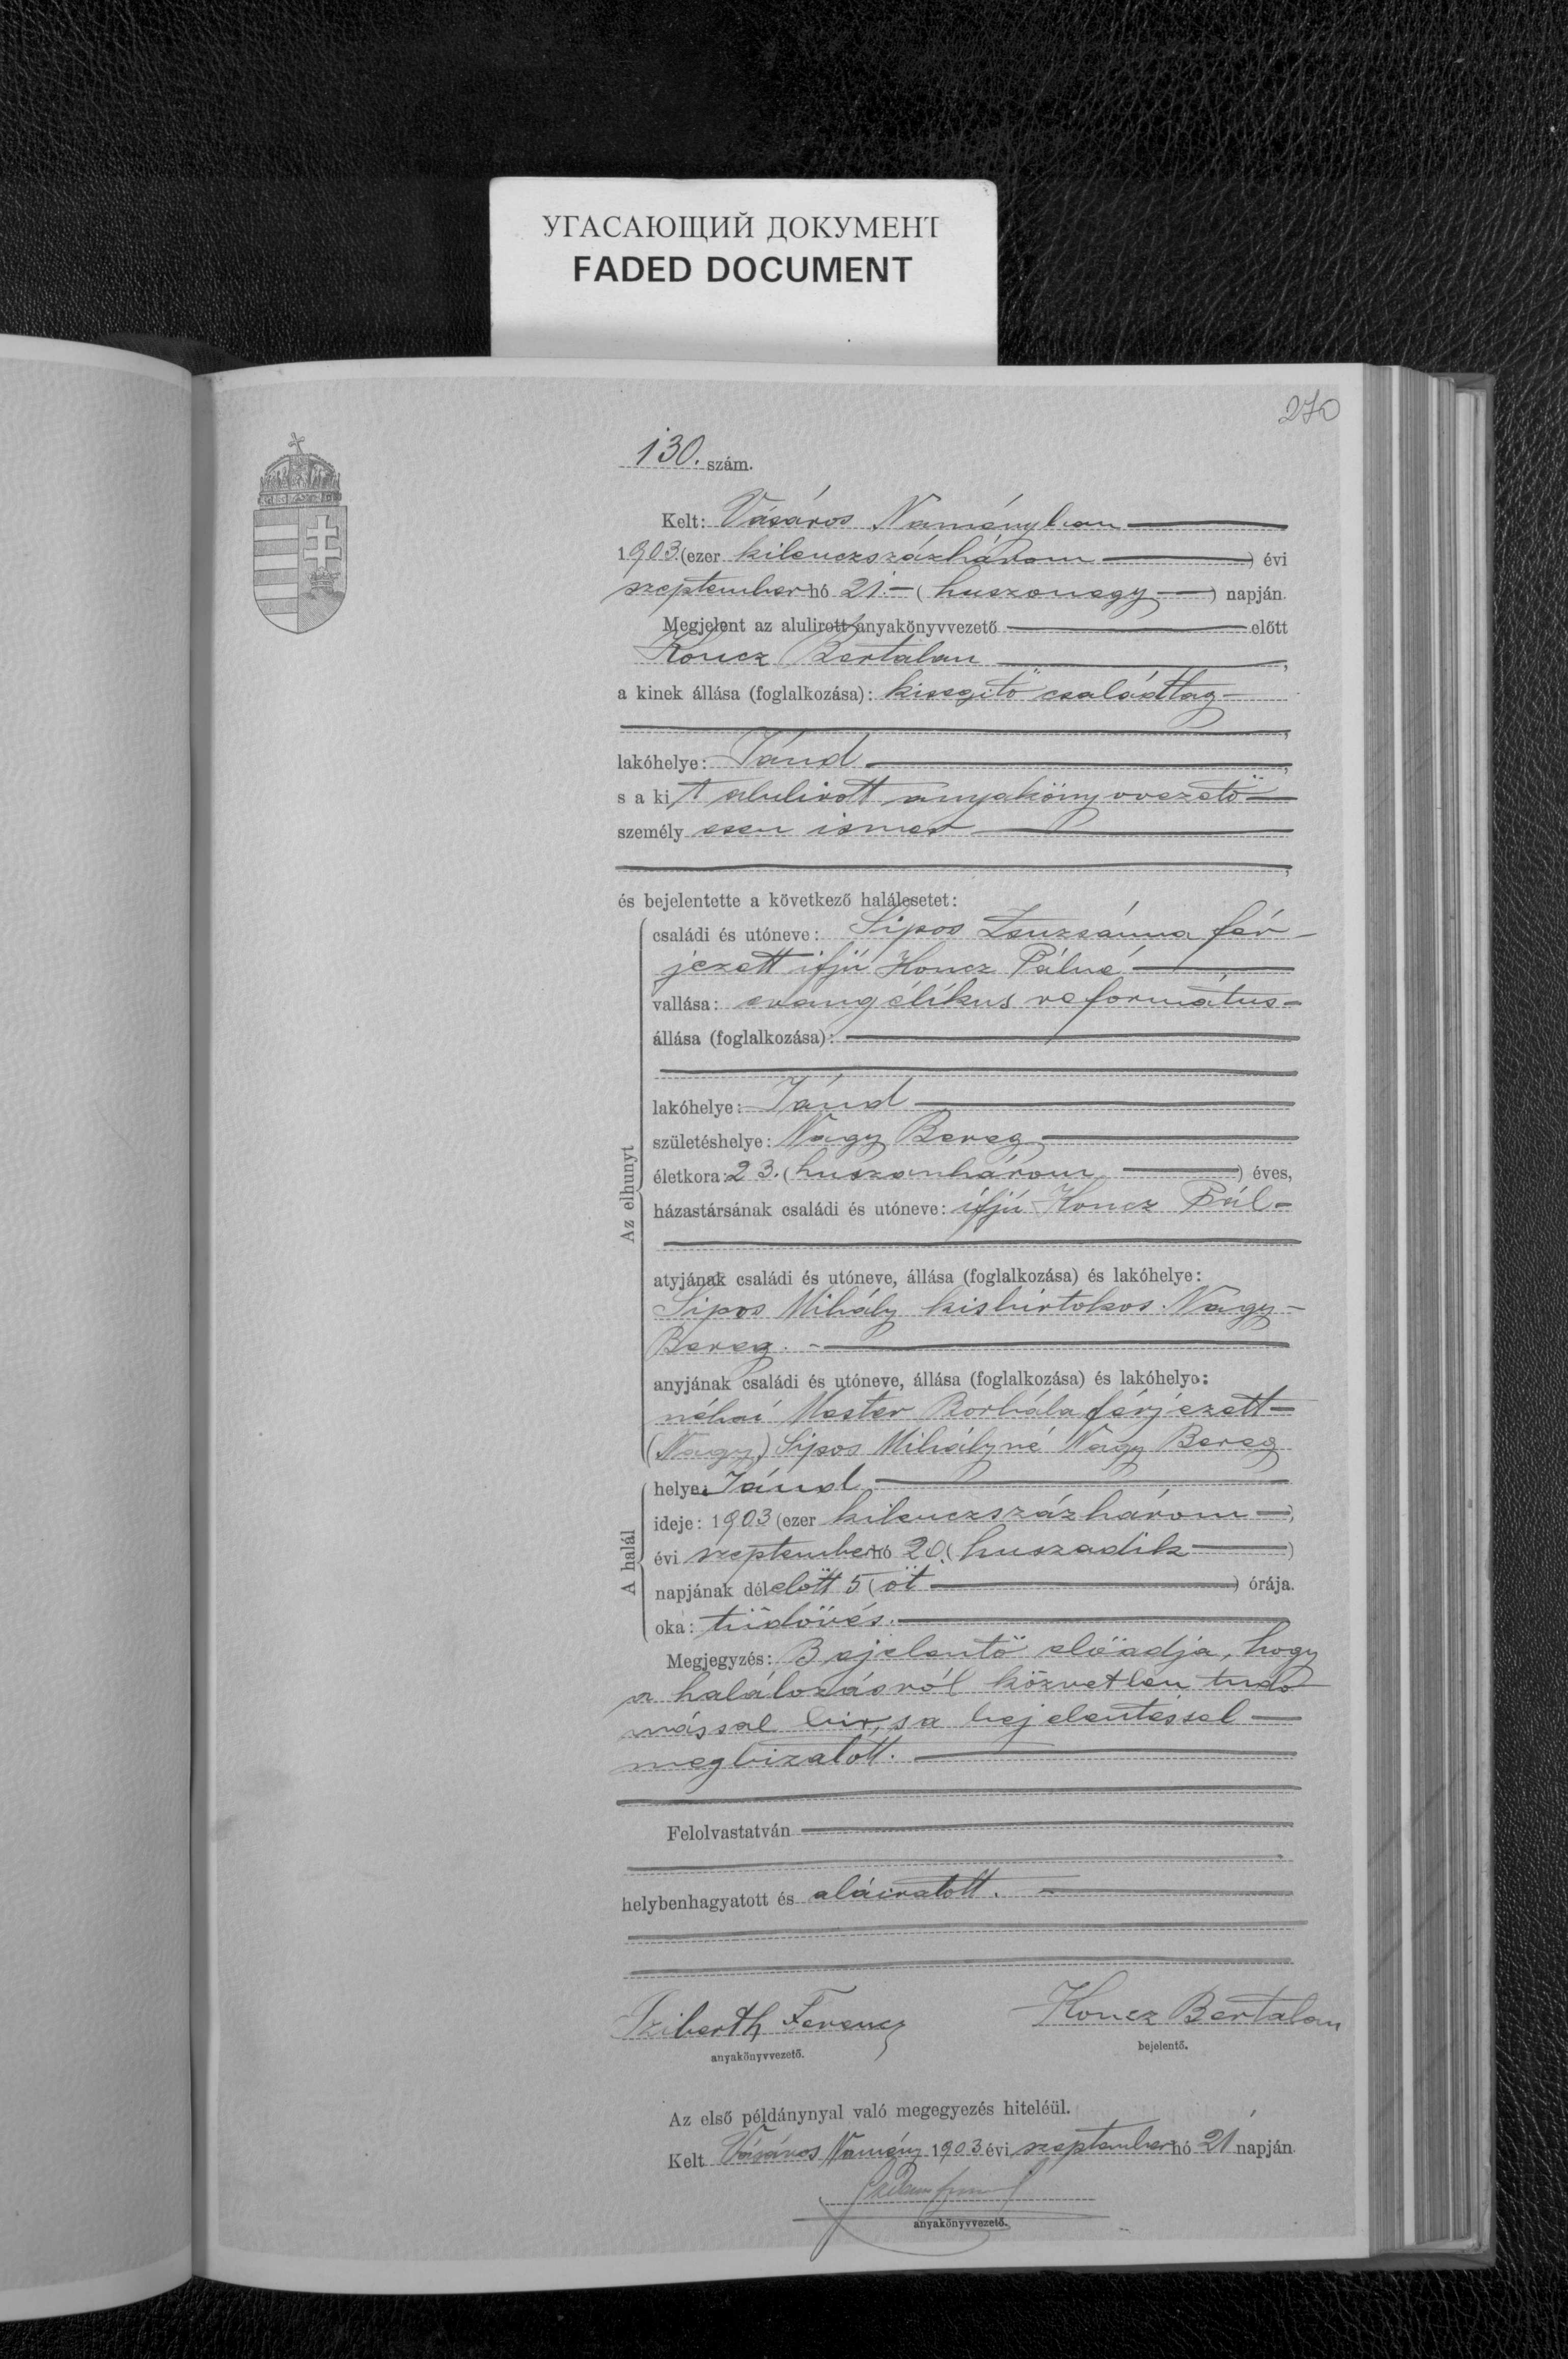 УГАСАЮЩИЙ ДОКУМЕНТ
FADED DOCUMENT
270
130. szám.
Kelt: Vásáros Naményban
1903. (ezer kilenczszázhárom ) évi
szeptember hó 21. ( huszonegy ) napján.
Megjelent az alulirott anyakönyvvezető előtt
Koncz Bertalan ,
a kinek állása (foglalkozása): kisegitö családtag
,
lakóhelye: Jánd ,
s a kit alulirott anyakönyvvezetö
személyesen ismer
,
és bejelentette a következő halálesetet:
Az elhunyt
családi és utóneve: Sipos Zsuzsánna fér-
jezett ifjú Koncz Pálné
vallása: evangélikus református
állása (foglalkozása):
lakóhelye: Jánd
születéshelye: Nagy Bereg
életkora: 23. ( huszonhárom ) éves,
házastársának családi és utóneve: ifjú Koncz Pál
atyjának családi és utóneve, állása (foglalkozása) és lakóhelye:
Sipos Mihály kisbirtokos Nagy-
Bereg.
anyjának családi és utóneve, állása (foglalkozása) és lakóhelye:
néhai Mester Borbála férjezett
(Nagy) Sipos Mihályné Nagy Bereg
A halál
helye: Jánd
ideje: 1903 (ezer kilenczszázhárom )
évi szeptember hó 20. ( huszadik )
napjának délelött 5 ( öt ) órája.
oka: tüdövés.
Megjegyzés: Bejelentö elöadja, hogy
a halálozásról közvetlen tudo
mással bir, s a bejelentéssel
megbizatott.
Felolvastatván
helybenhagyatott és aláiratott.
Ferencz Koncz Bertalan
anyakönyvvezető. bejelentő.
Az első példánynyal való megegyezés hiteléül.
Kelt Vásáros Namény 1903 évi szeptember hó 21 napján
anyakönyvvezető.